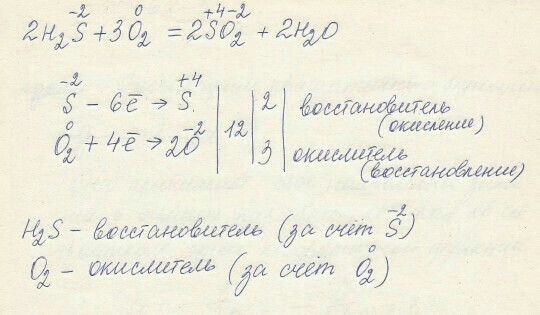 2H₂S⁻² + 3O₂⁰ = 2S⁺⁴O₂⁻² + 2H₂O
S⁻² – 6ē → S⁺⁴ | 12 | 2 | восстановитель (окисление)
O₂⁰ + 4ē → 2O⁻² | 3 | окислитель (восстановление)
H₂S – восстановитель (за счёт S⁻²)
O₂ – окислитель (за счёт O₂⁰)